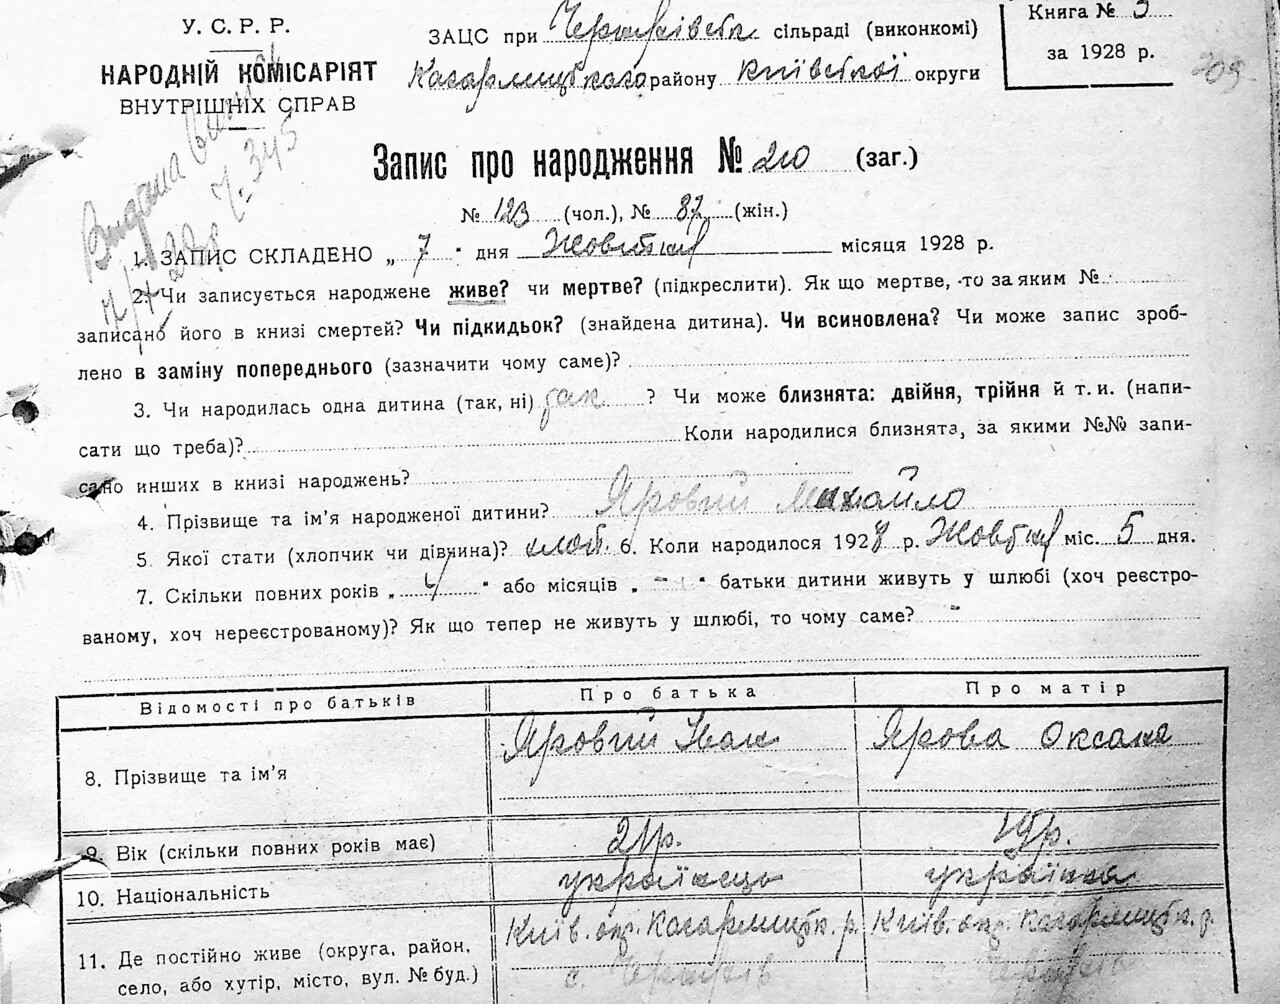 У. С. Р. Р.
НАРОДНІЙ КОМІСАРІЯТ
ВНУТРІШНІХ СПРАВ
ЗАЦС при сільраді (виконкомі)
Кагарлицького району Київської округи
Книга № 3
за 1928 р.
209
Видана
Запис про народження № 210 (заг.)
№ 123 (чол.), № 87 (жін.)
1. ЗАПИС СКЛАДЕНО „ 7 " дня Жовтня місяця 1928 р.
2. Чи записується народжене живе? чи мертве? (підкреслити). Як що мертве, то за яким №
записано його в книзі смертей? Чи підкидьок? (знайдена дитина). Чи всиновлена? Чи може запис зроб-
лено в заміну попереднього (зазначити чому саме)?
3. Чи народилась одна дитина (так, ні) так ? Чи може близнята: двійня, трійня й т. и. (напи-
сати що треба)? Коли народилися близнята, за якими №№ запи-
сано инших в книзі народжень?
4. Прізвище та ім'я народженої дитини? Яровий Михайло
5. Якої стати (хлопчик чи дівчина)? хлоп. 6. Коли народилося 1928 р. Жовтня міс. 5 дня.
7. Скільки повних років „ " або місяців „ - " батьки дитини живуть у шлюбі (хоч реєстро-
ваному, хоч нереєстрованому)? Як що тепер не живуть у шлюбі, то чому саме? -
Відомості про батьків Про батька Про матір
8. Прізвище та ім'я Яровий Іван Ярова Оксана
9. Вік (скільки повних років має) 21 р. 19 р.
10. Національність українець українка
11. Де постійно живе (округа, район, Київ. окр. Кагарлицьк. р. Київ. окр. Кагарлицьк. р.
село, або хутір, місто, вул. № буд.) с. с.